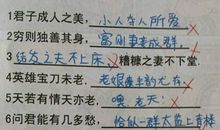 1君子成人之美，小人夺人所爱
2穷则独善其身，富则妻妾成群。
3结发之夫不上床，糟糠之妻不下堂.
4英雄宝刀未老，老娘丰韵尤存.
5天若有情天亦老，喂，老天!
6问君能有几多愁，恰似一群太监上青楼